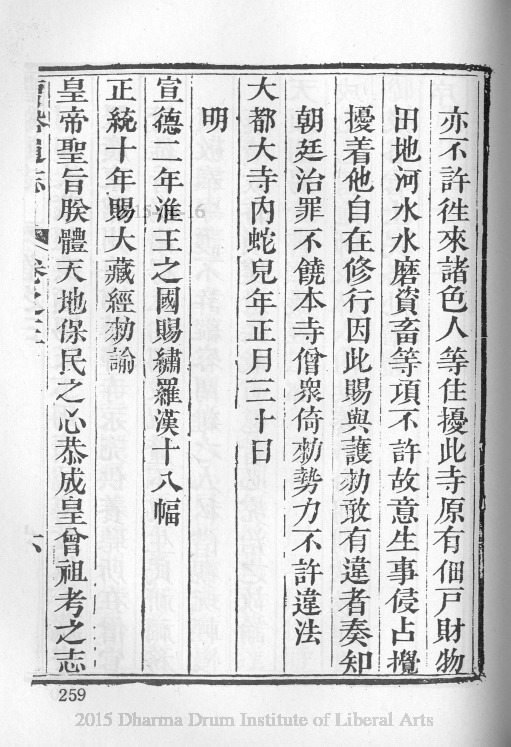 亦不許徃來諸色人等住擾此寺原有佃戸財物
田地河水水磨資畜等項不許故意生事侵占攪
擾着他自在修行因此賜與護勑敢有違者奏知
朝廷治罪不饒本寺僧衆倚勑勢力不許違法
大都大寺内蛇兒年正月三十日
明
宣德二年淮王之國賜繡羅漢十八幅
正統十年賜大藏經勑諭
皇帝聖旨朕體天地保民之心恭成皇曾祖考之志
卷之三
六
259
2015 Dharma Drum Institute of Liberal Arts